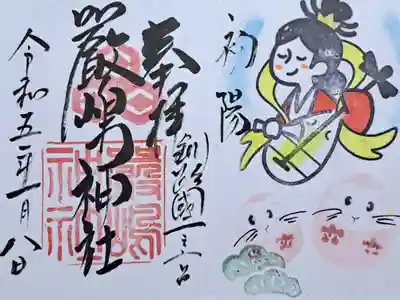 初陽
奉拝
釧路國一之宮
嚴嶋神社
令和五年一月八日